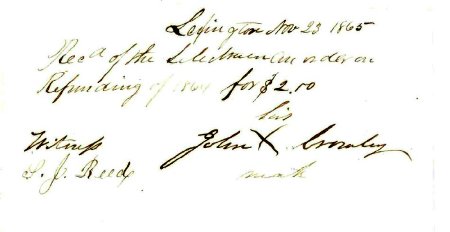 Lexington Nov 23 1865
Recd of the Selectmen an order on
Refunding of 1864 for $2.00
his
Witness John X Crowley
S. J. Reed mark